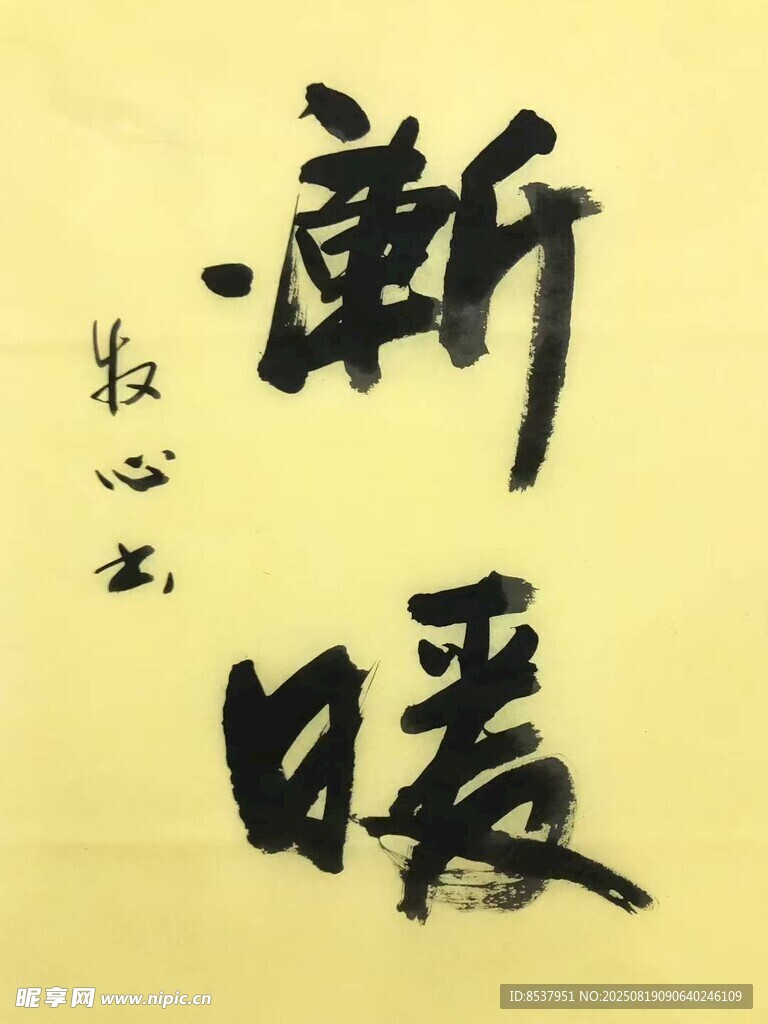 漸暖
牧心书
昵享网 www.nipic.cn
ID:8537951 NO:20250819090640246109